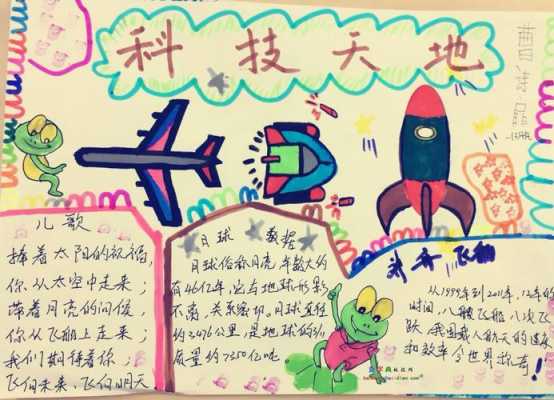 科技天地
儿歌
捧着太阳的祝福，
你从太空中走来；
带着月亮的问候，
你从飞船上走来；
我们期待着你；
飞向未来、飞向明天
月球 数据
月球俗称月亮，年龄大约
有46亿年，它与地球形影
不离，关系密切，月球直径
约3476公里，是地球的3/11
质量约7350亿吨
神舟飞船
从1999年到2011年，12年的
时间，八艘飞船，八次飞
跃，我国载人航天的速度
和效率令世界惊奇！